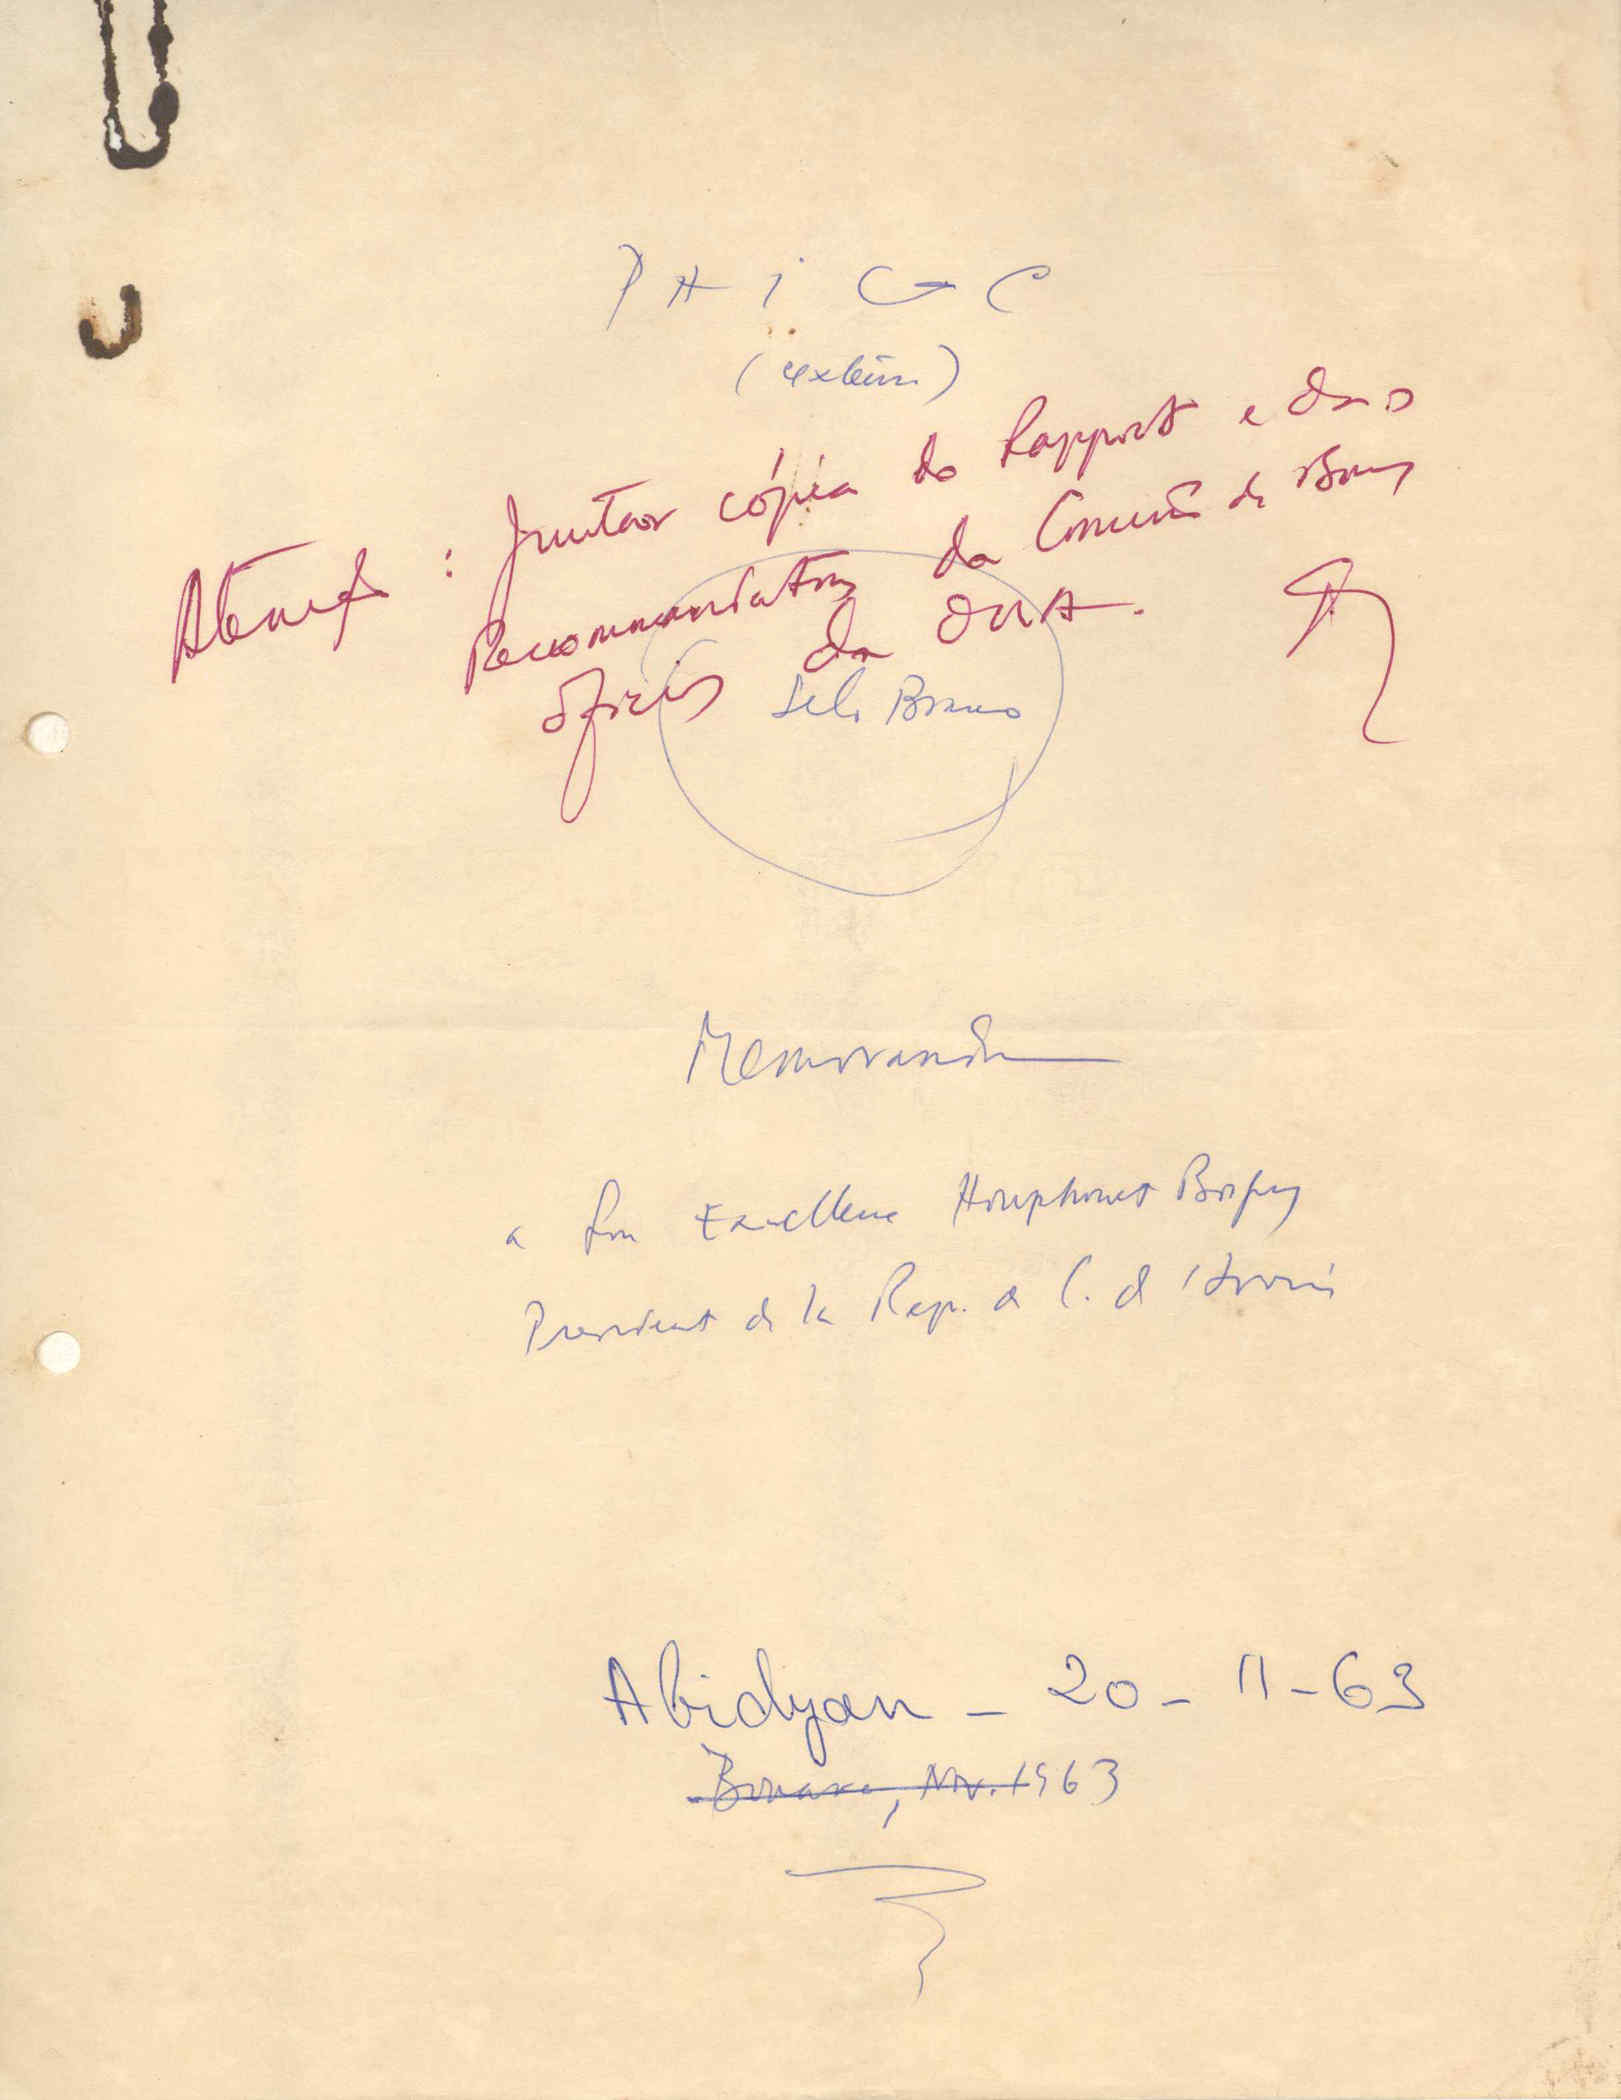 PAIGC
(extenso)
Atenção : Juntar cópia do Rapport e das
Recommandations da Comissão de Bons
ofícios da ONU.
Selo Branco
Memorandum
a Son Excellence Houphouet Boigny
President de la Rep. de C. d'Ivoire
Abidyan - 20 - 11 - 63
Nov. 1963